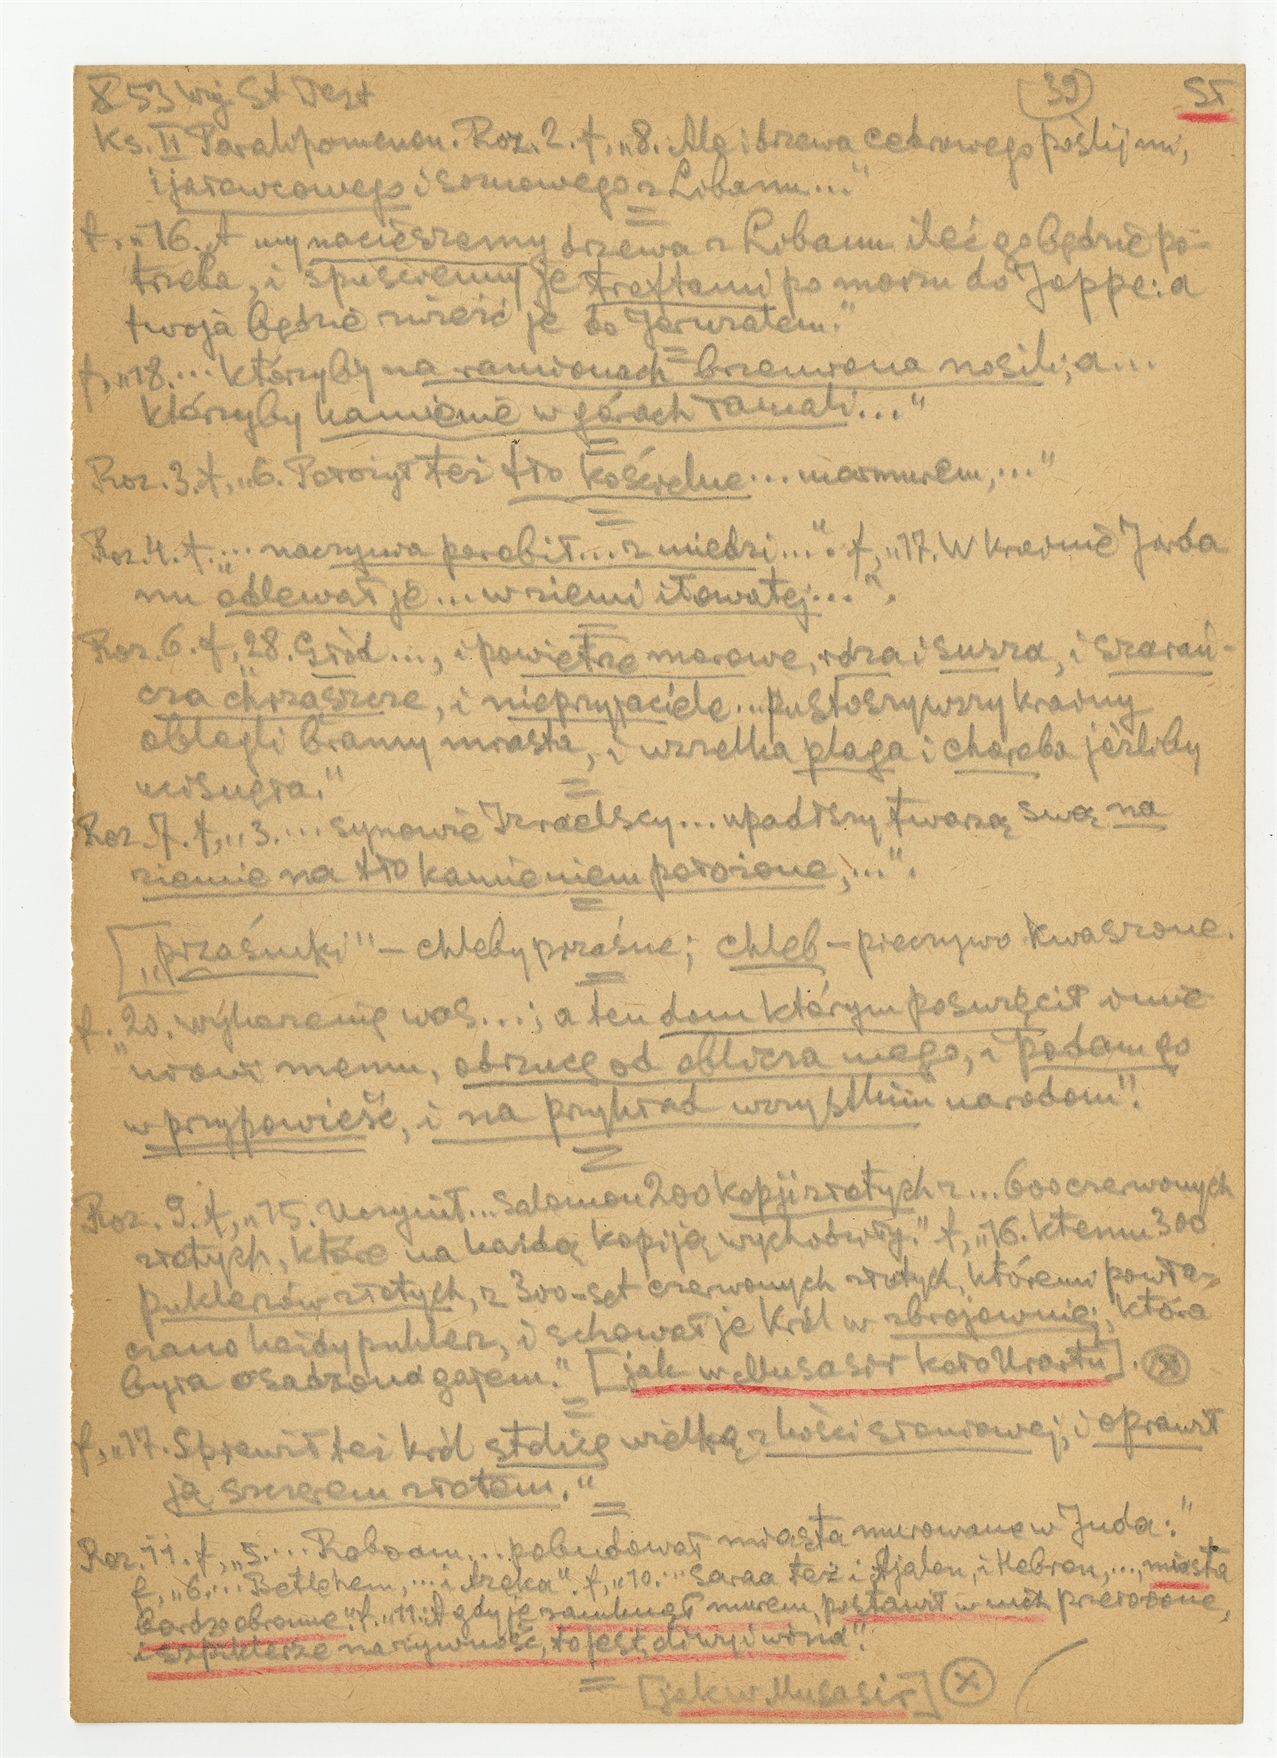 X 53 Wyj. St Test (39) ST
Ks. II Paralipomenon. Roz. 2. f, „8. Ale i drzewa cedrowego pošlij mi,
i jałowcowego i sosnowego z Libanu..."
f, „16. A my nacieszemy drzewa z Libanu ileć go będzie po-
trzeba, i spuściemy je treftami po morzu do Joppe: a
twoja będzie zwieść je do Jeruzalem."
f, „18.... którzyby na ramionach brzemiona nosili; a...
którzyby kamienie w górach łamali..."
Roz. 3. f, „6. Położył też tło kościelne... marmurem,..."
Roz. 4. f, „... naczynia porobił... z miedzi...". f, „17. W krainie Jorda
nu odlewał je... w ziemi iłowatej...".
Roz. 6. f, „28. Głód..., i powietrze morowe, rdza i susza, i szarań-
cza chrząszcze, i nieprzyjaciele... pustoszywszy krainy
oblegli bramy miasta, i wszelka plaga i choroba jeśliby
ucisnęła."
Roz. 7. f, „3.... synowie Izraelscy... upadłszy twarzą swą na
ziemie na tło kamieniem położone,...".
[„przaśniki" – chleby przaśne; chleb – pieczywo kwaszone.
f. „20. wykorzenię was...; a ten dom którym poświęcił imie
niowi memu, odrzucę od oblicza mego, i podam go
w przypowieść, i na przykład wszystkim narodom".
Roz. 9. f, „15. Uczynił... Salomon 200 kopji złotych z... 600 czerwonych
złotych, które na każdą kopiją wychodziły." f, „16. k temu 300
puklerzów złotych, z 300-set czerwonych złotych, któremi powła-
czano każdy puklerz, i schował je król w zbrojownię, która
była osadzona gajem." [jak w Musasir koło Urartu]. (X)
f, „17. Sprawił też król stolicę wielką z kości słoniowej, i oprawił
ją szczerem złotem."
Roz. 11. f, „5.... Roboam,... pobudował miasta murowane w Juda:"
f, „6... Betlehem,... i ...". f, „10... Saraa też i Ajalon, i Hebron,..., miasta
bardzo obronne". f. „11. A gdy je zamknął murem, postawił w nich przełożone,
i szpiklerze na żywność, to jest, oliwy i wina".
[jak w Musasir] (X)